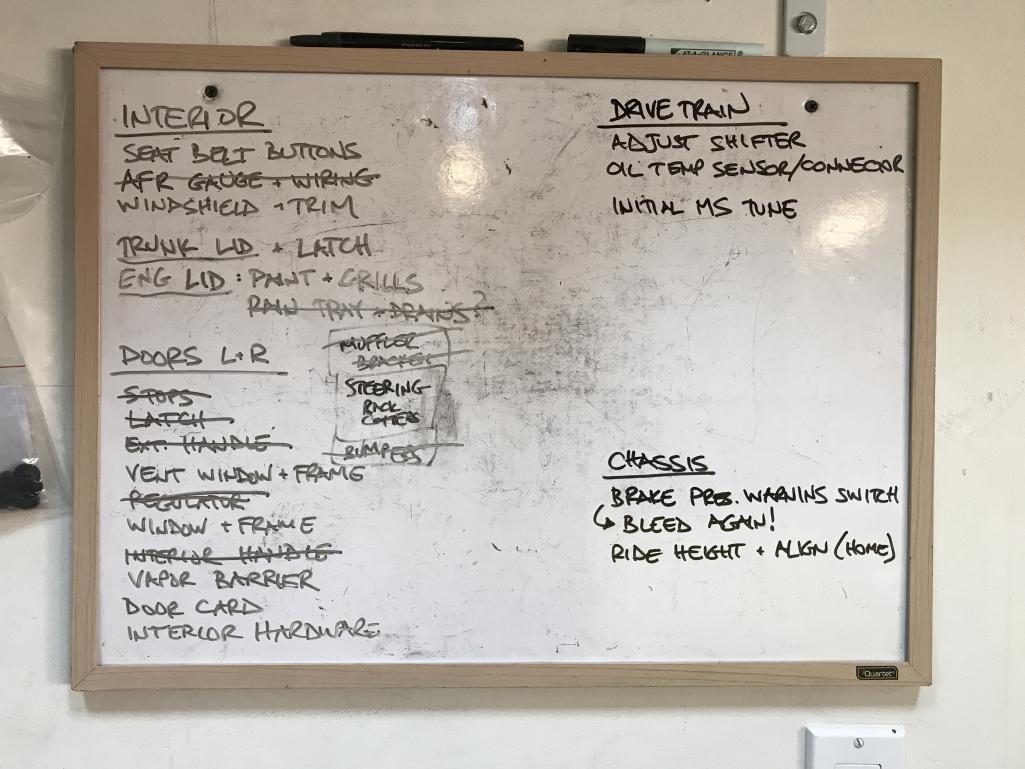 INTERIOR
SEAT BELT BUTTONS
AFR GAUGE + WIRING
WINDSHIELD + TRIM
TRUNK LID + LATCH
ENG LID : PAINT + GRILLS
RAIN TRAY + DRAINS?
DOORS L+R
STOPS
LATCH
EXT. HANDLE
VENT WINDOW + FRAME
REGULATOR
WINDOW + FRAME
INTERIOR HANDLE
VAPOR BARRIER
DOOR CARD
INTERIOR HARDWARE
MUFFLER
BRACKET
STEERING
RACK
COTTERS
BUMPERS
DRIVETRAIN
ADJUST SHIFTER
OIL TEMP SENSOR/CONNECTOR
INITIAL MS TUNE
CHASSIS
BRAKE PRES. WARNING SWITCH
↳ BLEED AGAIN!
RIDE HEIGHT + ALIGN (HOME)
AT-A-GLANCE
Quartet